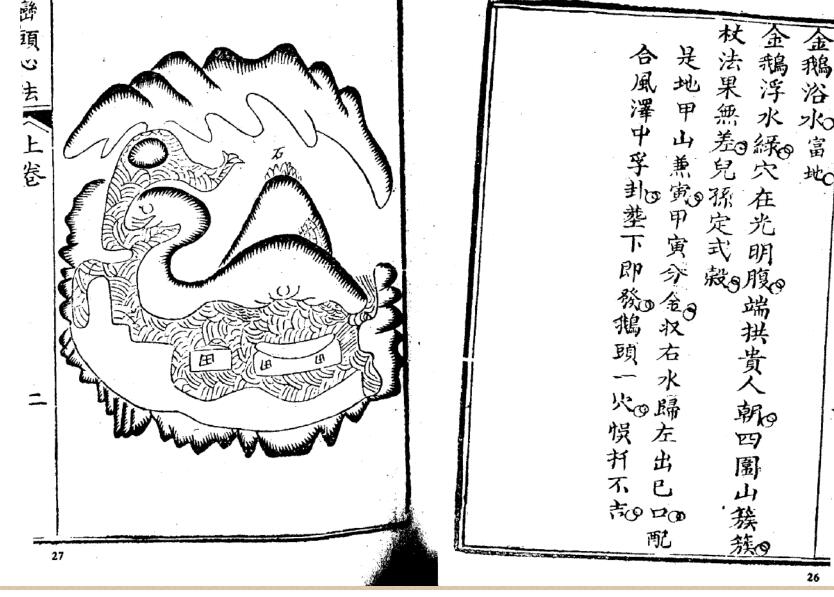 金鵝浴水。富地。
金鵝浮水綠。穴在光明腹。端拱貴人朝。四圍山簇簇。
杖法果無差。兒孫定式穀。
是地甲山兼寅。甲寅分金。収右水歸左出巳口。配
合風澤中孚卦。塟下即發。鵝頭一穴。悞扦不吉。
26
石
田
田
田
巒頭心法
上卷
二
27